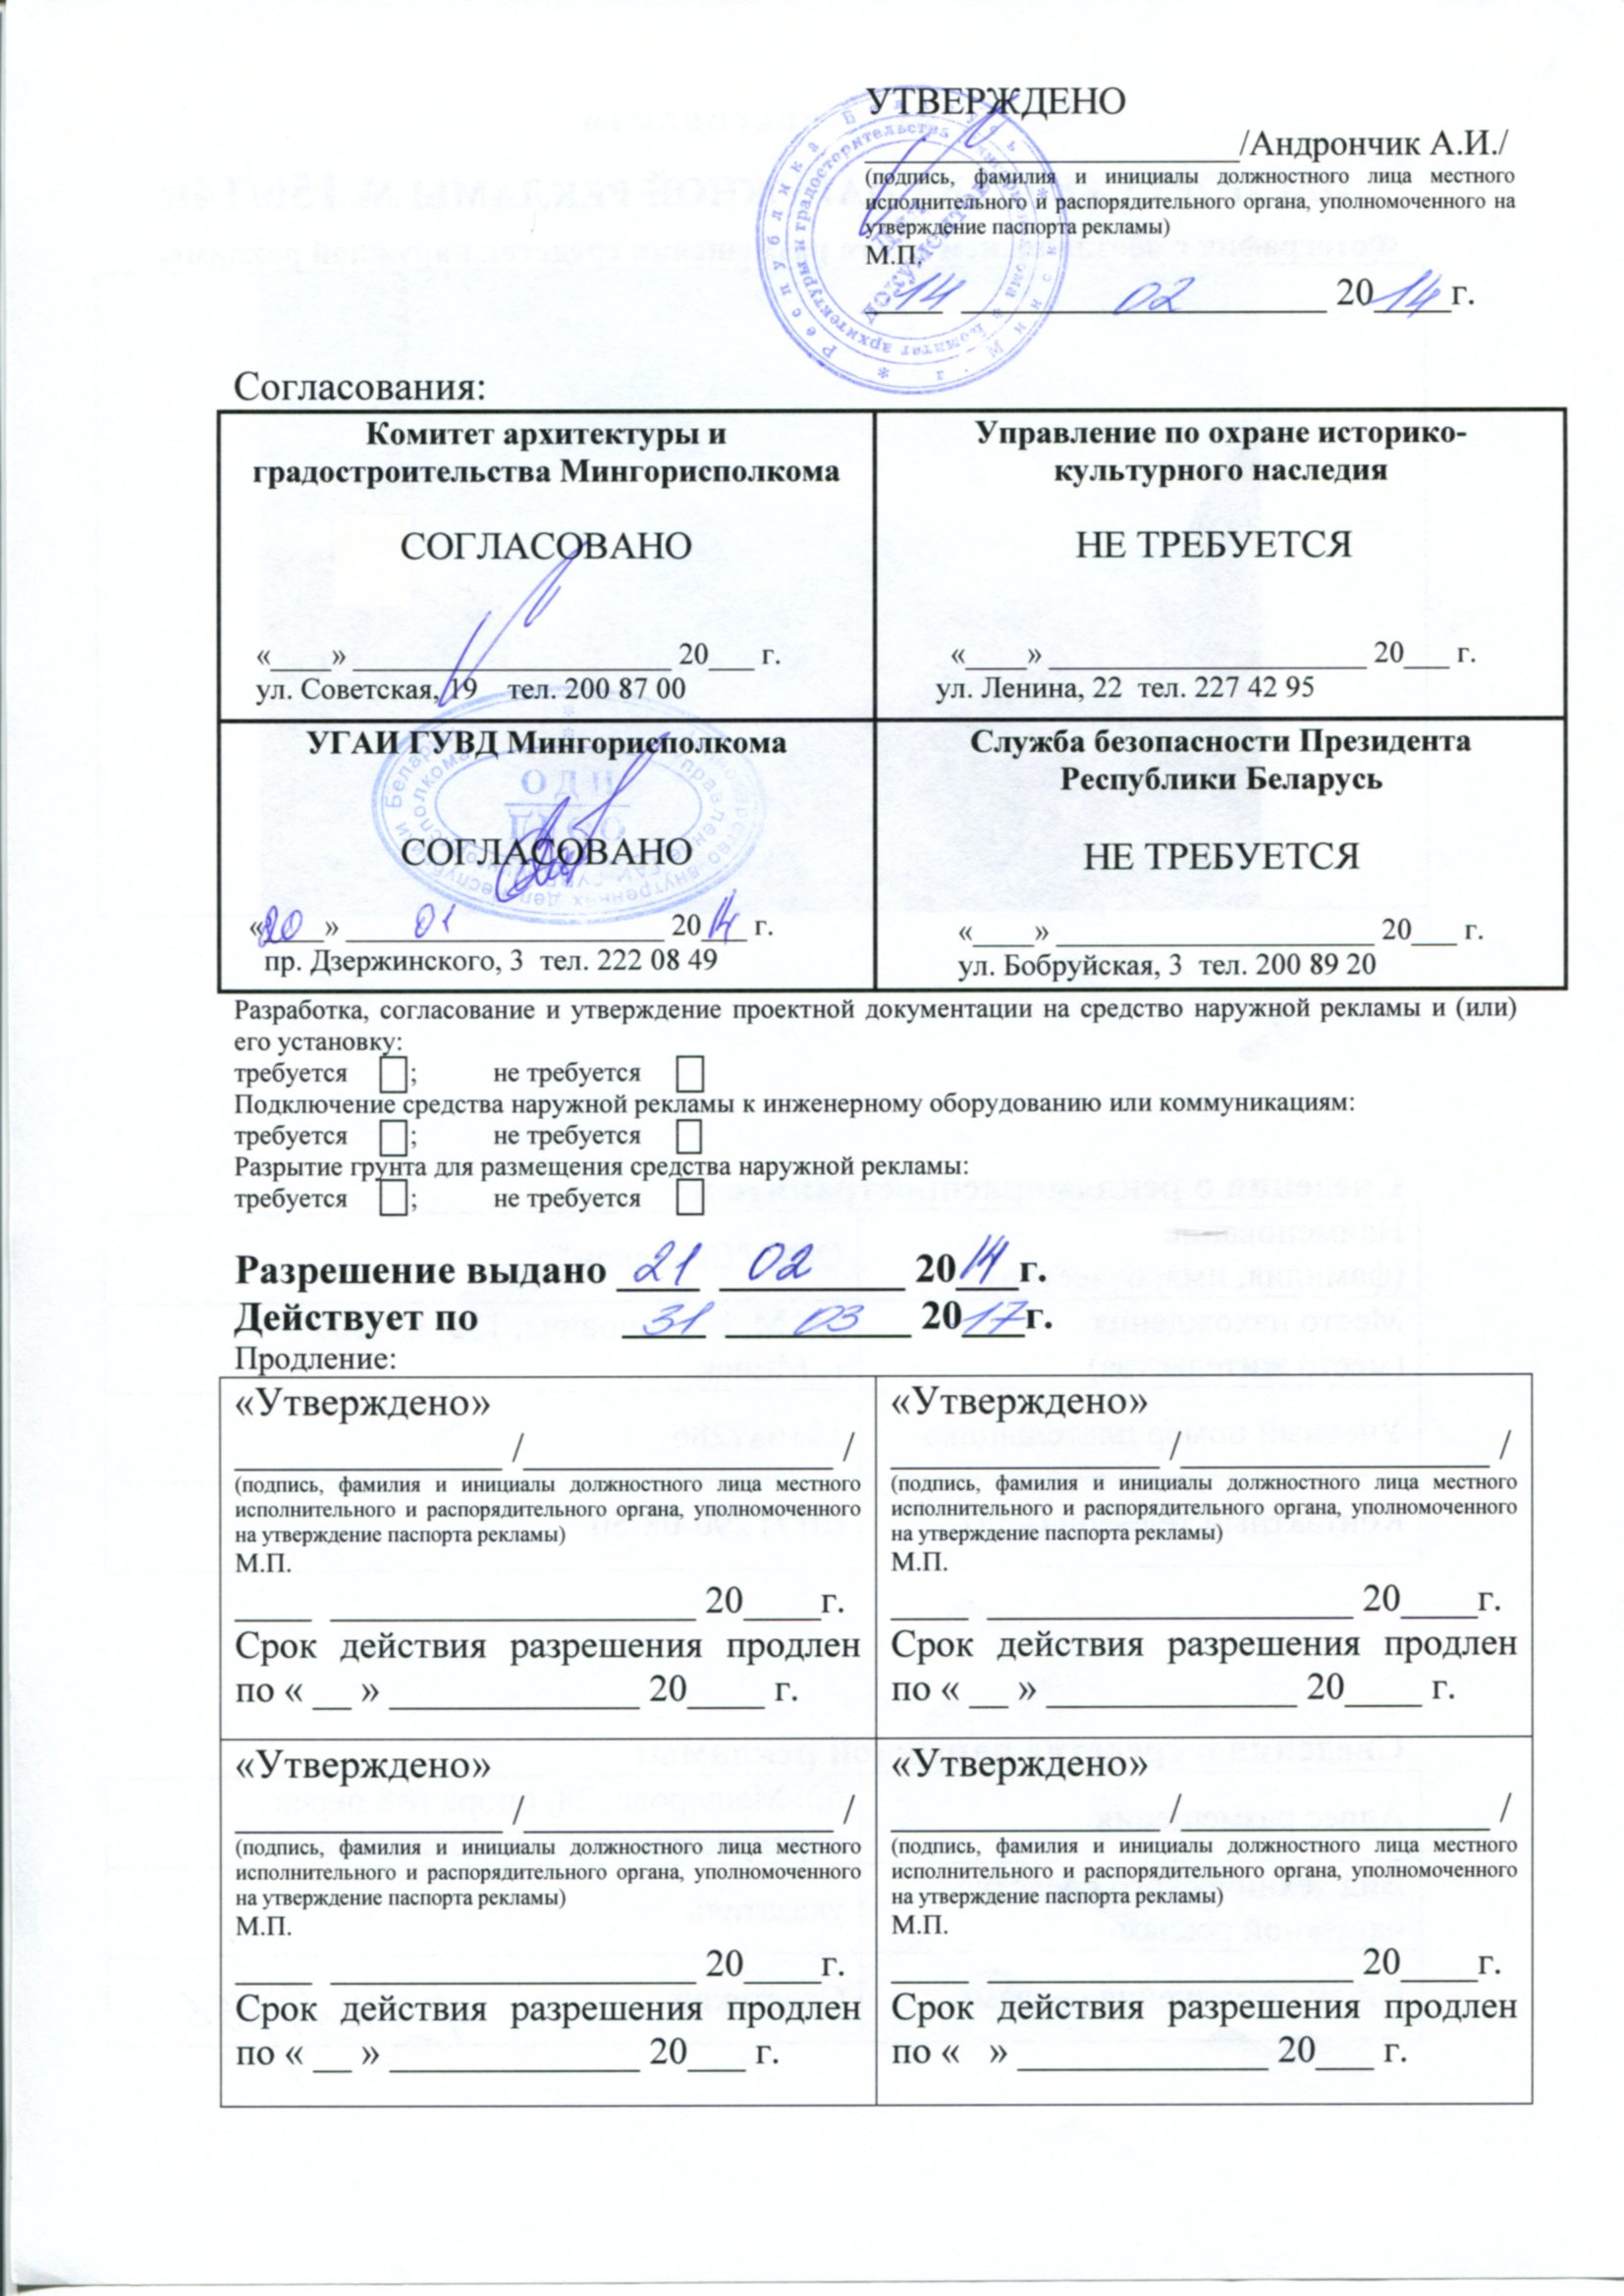 УТВЕРЖДЕНО
____________________/Андрончик А.И./
(подпись, фамилия и инициалы должностного лица местного
исполнительного и распорядительного органа, уполномоченного на
утверждение паспорта рекламы)
М.П.
14 02 2014г.
Согласования:
Комитет архитектуры и
градостроительства Мингорисполкома
СОГЛАСОВАНО
«____» _____________________ 20___ г.
ул. Советская, 19 тел. 200 87 00
Управление по охране историко-
культурного наследия
НЕ ТРЕБУЕТСЯ
«____» _____________________ 20___ г.
ул. Ленина, 22 тел. 227 42 95
УГАИ ГУВД Мингорисполкома
СОГЛАСОВАНО
«20» 01 2014 г.
пр. Дзержинского, 3 тел. 222 08 49
Служба безопасности Президента
Республики Беларусь
НЕ ТРЕБУЕТСЯ
«____» _____________________ 20___ г.
ул. Бобруйская, 3 тел. 200 89 20
Разработка, согласование и утверждение проектной документации на средство наружной рекламы и (или)
его установку:
требуется ; не требуется
Подключение средства наружной рекламы к инженерному оборудованию или коммуникациям:
требуется ; не требуется
Разрытие грунта для размещения средства наружной рекламы:
требуется ; не требуется
Разрешение выдано 21 02 2014г.
Действует по 31 03 2017г.
Продление:
«Утверждено»
______________ /________________ /
(подпись, фамилия и инициалы должностного лица местного
исполнительного и распорядительного органа, уполномоченного
на утверждение паспорта рекламы)
М.П.
____ ___________________ 20____г.
Срок действия разрешения продлен
по « __ » _____________ 20____ г.
«Утверждено»
______________ /________________ /
(подпись, фамилия и инициалы должностного лица местного
исполнительного и распорядительного органа, уполномоченного
на утверждение паспорта рекламы)
М.П.
____ ___________________ 20____г.
Срок действия разрешения продлен
по « __ » _____________ 20____ г.
«Утверждено»
______________ /________________ /
(подпись, фамилия и инициалы должностного лица местного
исполнительного и распорядительного органа, уполномоченного
на утверждение паспорта рекламы)
М.П.
____ ___________________ 20____г.
Срок действия разрешения продлен
по « __ » _____________ 20___ г.
«Утверждено»
______________ /________________ /
(подпись, фамилия и инициалы должностного лица местного
исполнительного и распорядительного органа, уполномоченного
на утверждение паспорта рекламы)
М.П.
____ ___________________ 20____г.
Срок действия разрешения продлен
по « » _____________ 20___ г.